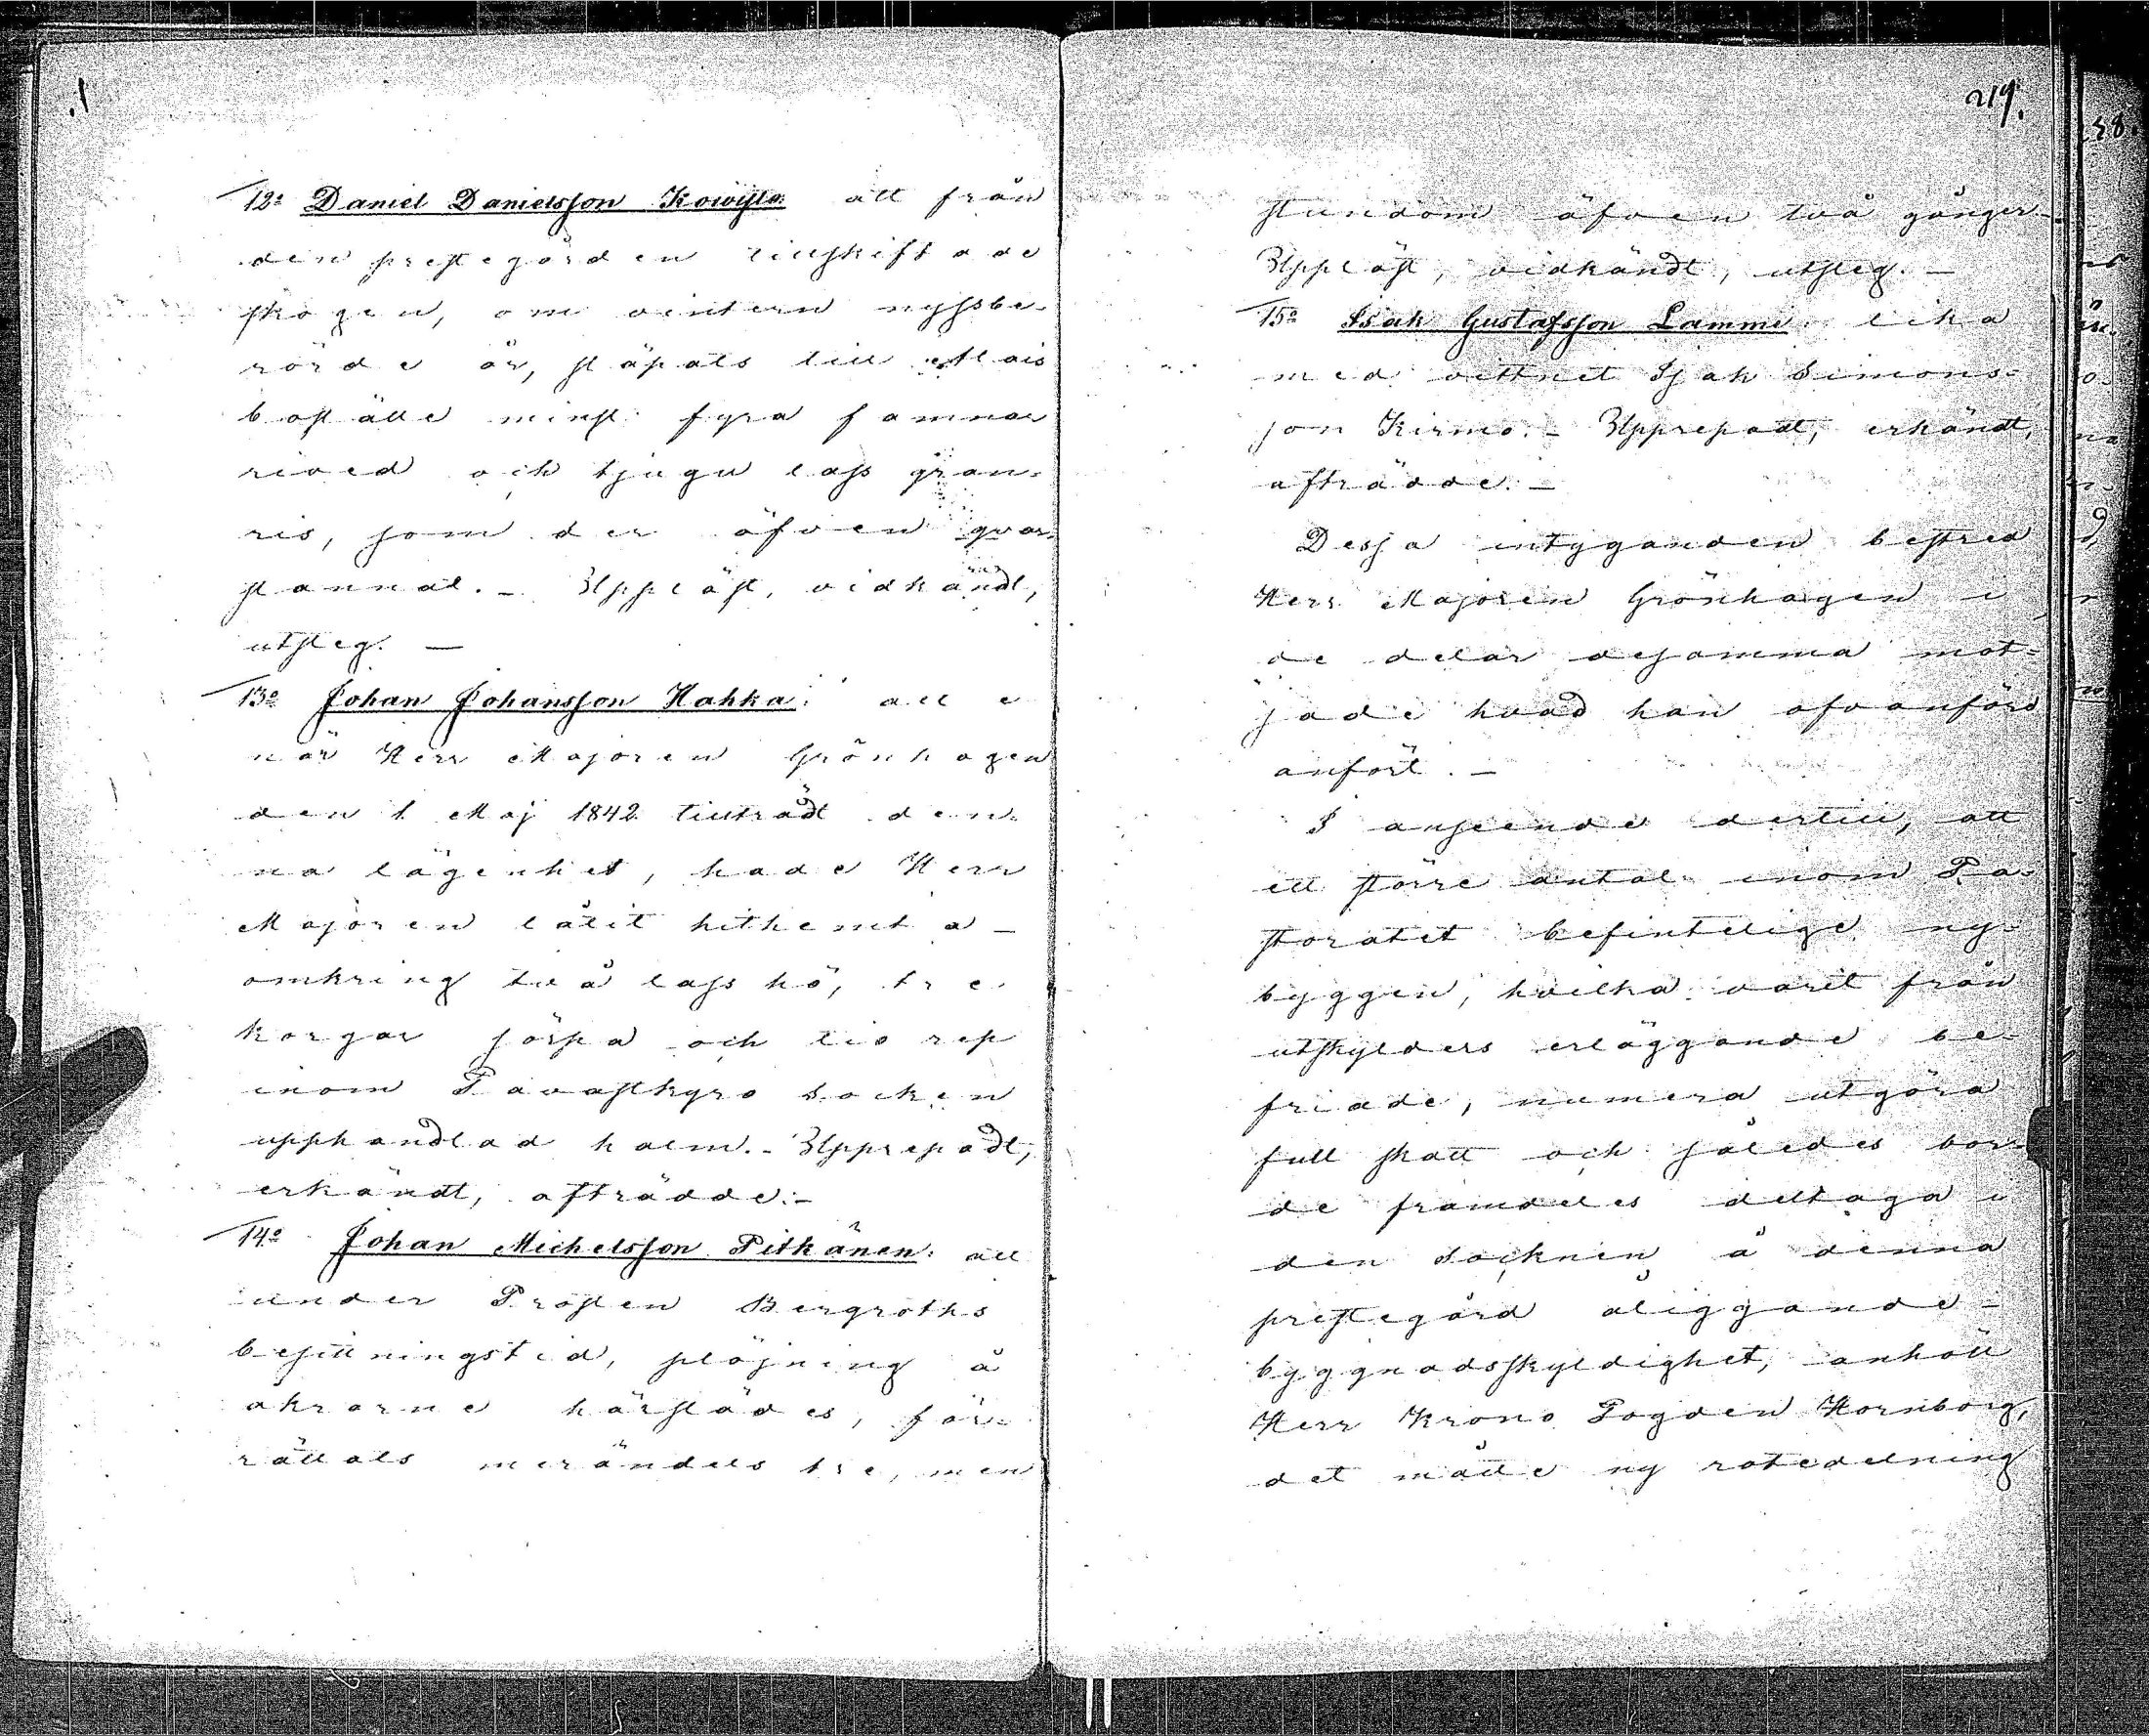 12o Daniel Danielsson Koivisto: att från
den prestegården tillskiftade
skogen, om vintern nyssbe-
rörde år, släpats till Mais
boställe minst fyra famnar
rived och tjugu lass gran-
ris, som der äfven qvar-
stannat. – Uppläst, vidkändt,
utsteg. –
13o Johan Johansson Hahka: att e
när Herr Majoren Grönhagen
den 1 Maj 1842 tillträdt den-
na lägenhet, hade Herr
Majoren låtit hithemta –
omkring två lass hö, tre
korgar sörpa och tio rep
inom Tavastkyro Socken
upphandlad halm. – Upprepadt,
erkändt, afträdde. –
14o Johan Michelsson Pitkänen: att
under Prosten Bergroths
besittningstid, plöjning å
åkrarne härstädes, för-
rättats merändels tre, men
219.
stundom äfven två gånger –
Uppläst, vidkändt, utsteg. –
15o Isak Gustafsson Lammi: lika
med vittnet Isak Simons-
son Kirmo. – Upprepadt, erkändt,
afträdde. –
Dessa intyganden bestred
Herr Majoren Grönhagen i
de delar desamma mot-
sade hvad han ofvanföre
anfört. –
I anseende dertill, att
ett större antal inom Pa-
storatet befintelige ny-
byggen, hvilka varit från
utskylders erläggande be-
friade, numera utgöra
full skatt och således bor-
de framdeles deltaga i
den Socknen å denna
prestegård åliggande –
byggnadsskyldighet, anhöll
Herr Krono Fogden Hornborg,
det måtte ny rotedelning